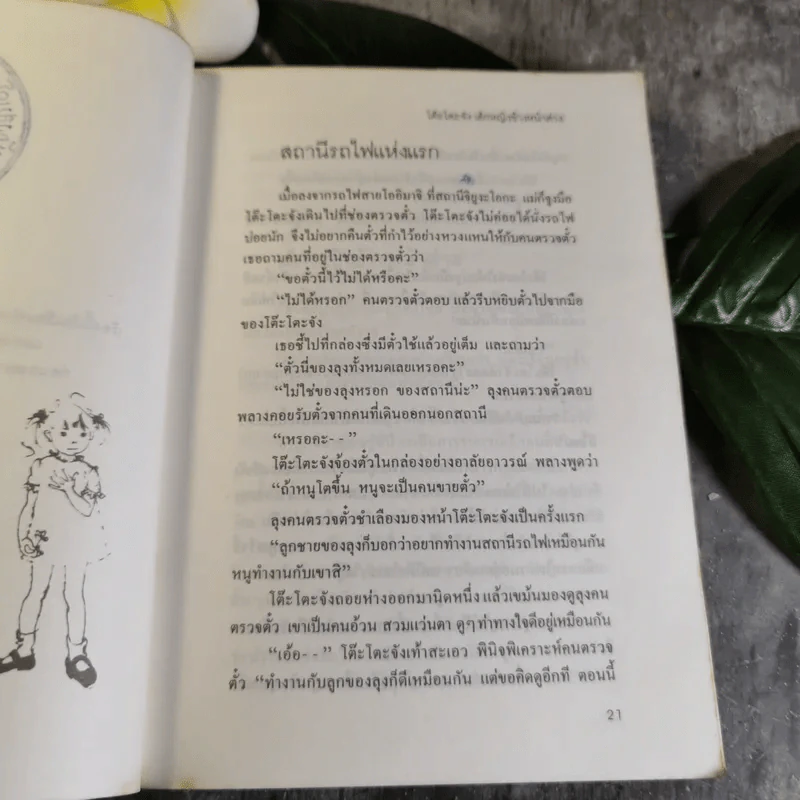 โต๊ะโตะจัง เด็กหญิงข้างหน้าต่าง
สถานีรถไฟแห่งแรก
เมื่อลงจากรถไฟสายโออิมาจิ ที่สถานีจิยูงะโอกะ แม่ก็จูงมือ
โต๊ะโตะจังเดินไปที่ช่องตรวจตั๋ว โต๊ะโตะจังไม่ค่อยได้นั่งรถไฟ
บ่อยนัก จึงไม่อยากคืนตั๋วที่กำไว้อย่างหวงแหนให้กับคนตรวจตั๋ว
เธอถามคนที่อยู่ในช่องตรวจตั๋วว่า
“ขอตั๋วนี้ไว้ไม่ได้หรือคะ”
“ไม่ได้หรอก” คนตรวจตั๋วตอบ แล้วรีบหยิบตั๋วไปจากมือ
ของโต๊ะโตะจัง
เธอชี้ไปที่กล่องซึ่งมีตั๋วใช้แล้วอยู่เต็ม และถามว่า
“ตั๋วนี่ของลุงทั้งหมดเลยเหรอคะ”
“ไม่ใช่ของลุงหรอก ของสถานีน่ะ” ลุงคนตรวจตั๋วตอบ
พลางคอยรับตั๋วจากคนที่เดินออกนอกสถานี
“เหรอคะ- - ”
โต๊ะโตะจังจ้องตั๋วในกล่องอย่างอาลัยอาวรณ์ พลางพูดว่า
“ถ้าหนูโตขึ้น หนูจะเป็นคนขายตั๋ว”
ลุงคนตรวจตั๋วชำเลืองมองหน้าโต๊ะโตะจังเป็นครั้งแรก
“ลูกชายของลุงก็บอกว่าอยากทำงานสถานีรถไฟเหมือนกัน
หนูทำงานกับเขาสิ”
โต๊ะโตะจังถอยห่างออกมานิดหนึ่ง แล้วเขม้นมองดูลุงคน
ตรวจตั๋ว เขาเป็นคนอ้วน สวมแว่นตา ดูๆ ท่าทางใจดีอยู่เหมือนกัน
“เอ้อ- - ” โต๊ะโตะจังเท้าสะเอว พินิจพิเคราะห์คนตรวจ
ตั๋ว “ทำงานกับลูกของลุงก็ดีเหมือนกัน แต่ขอคิดดูอีกที ตอนนี้
21